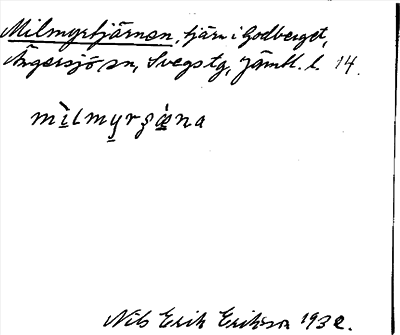 Milmyrtjärnen, tjärn i Godberget,
Ängersjö sn, Svegs tg, Jämtl. l. 14.
mìlmyrʂæ̀na
Nils Erik Erikson 1932.